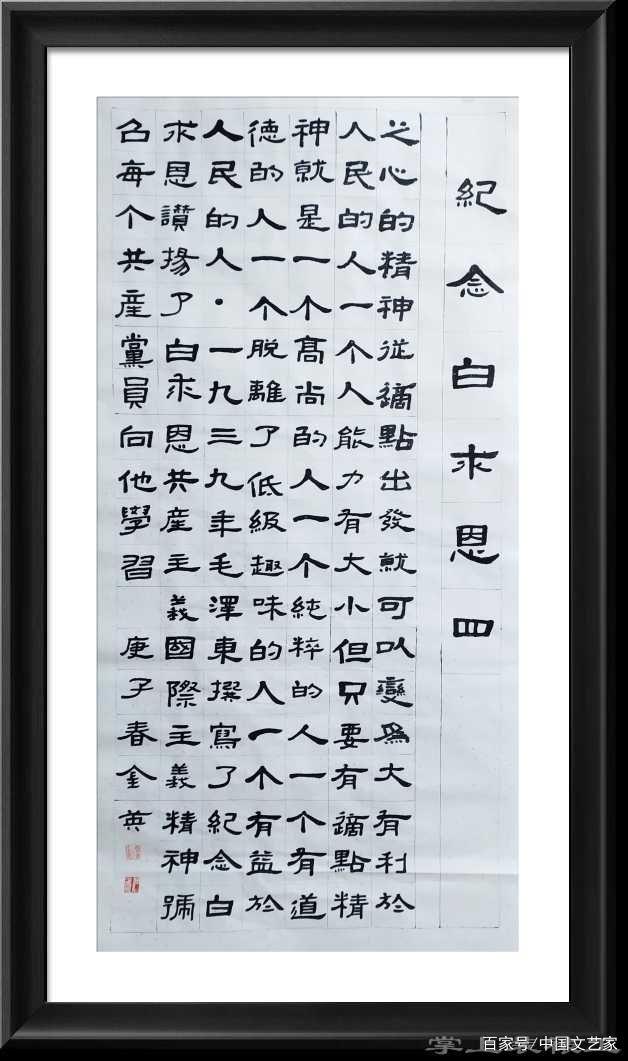 紀念白求恩四
之心的精神従適點出發就可以變為大有利於
人民的人一个人能力有大小但只要有適點精
神就是一个髙尚的人一个純粹的人一个有道
德的人一个脫離了低級趣味的人一个有益於
人民的人·一九三九年毛澤東撰寫了紀念白
求恩讚揚了白求恩共産主義國際主義精神號
召每个共産黨員向他學習 庚子春金英
百家号/中国文艺家